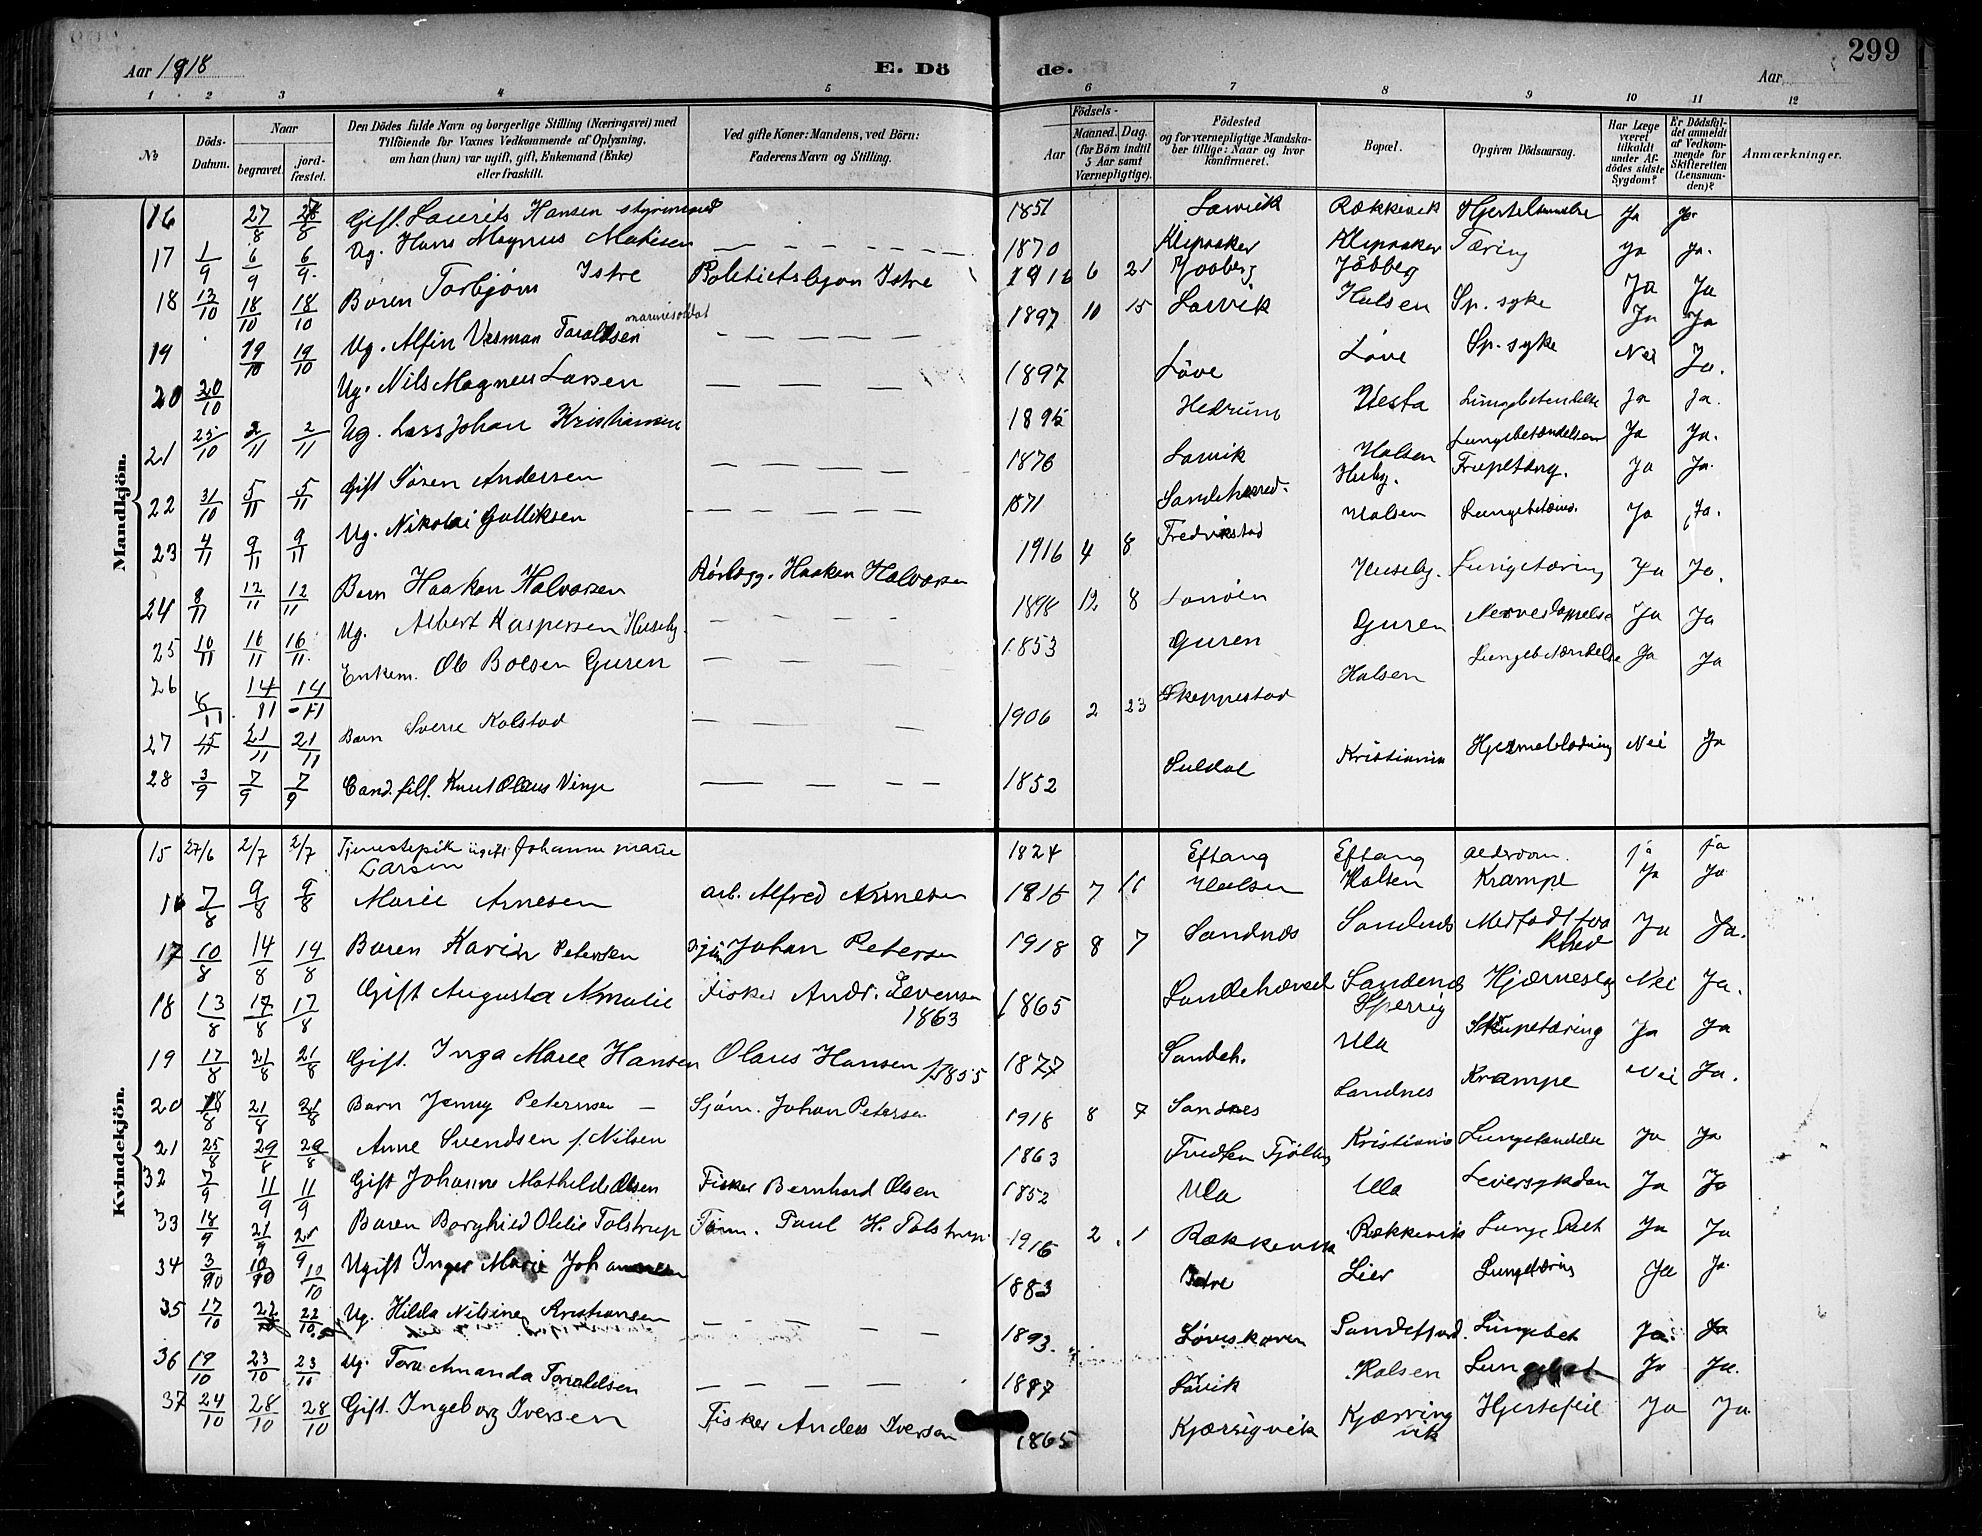 299
Aar 1918 E. Dö de. Aar
1 2 3 4 5 6 7 8 9 10 11 12
No
Döds-Datum.
Naar
begravet.
jord-fæstet.
Den Dödes fulde Navn og borgerlige Stilling (Næringsvei) med
Tilföiende for Voxnes Vedkommende af Oplysning,
om han (hun) var ugift, gift, Enkemand (Enke)
eller fraskilt.
Ved gifte Koner: Mandens, ved Börn:
Faderens Navn og Stilling.
Födsels-
Aar
Maaned. Dag.
(for Börn indtil
5 Aar samt
Værnepligtige).
Födested
og for værnepligtige Mandsku-
ber tillige: Naar og hvor
konfirmeret.
Bopæl.
Opgiven Dödsaarsag.
Har Læge
været
tilkaldt
under Af-
dödes sidste
Sygdom?
Er Dödsfal-
det anmeldt
af Vedkom-
mende for
Skifteretten
(Lensman-
den)?
Anmærkninger.
Mandkjön.
16 27/8 Gift. Laurits Hansen styrmand 1851 Larvik Rækkevik Ja Ja
17 1/9 6/9 6/9 Ug. Hans Magnus — — — 1870 Klipaaker Klipaaker Tæring Ja Ja.
18 13/10 18/10 18/10 Baren Torbjørn Istre Istre 1916 6 21 Jobberg Ja Ja
19 19/10 19/10 Ug. Alfin Taraldsen marinesoldat — — — 1897 10 15 Larvik Halsen Sp. syke Ja Ja
20 20/10 Ug. Nils Magnus Larsen — — — 1897 Löve Löve Sp. syke Nei Ja.
21 25/10 2/11 2/11 Ug. Lars Johan Kristiansen 1895 Hedrum Vesta Lungebetendelse Ja Ja.
22 31/10 5/11 5/11 Gift Sören Andersen — — — 1876 Larvik Halsen Lungebetændelsen Ja Ja.
23 4/11 9/11 9/11 Ug. Nikolai Gulliksen — — — 1871 Sandeherred. Huby. Ja Ja.
24 8/11 12/11 12/11 Barn Haakon Halvorsen Rörlegg. Haakon Halvorsen 1916 4 8 Fredrikstad Halsen Ja Ja.
25 10/11 16/11 16/11 Ug. Albert Kaspersen Huseby. — — — 1898 12 8 Huseby. Lungetæring Ja Ja.
26 8/11 14/11 14/11 Enkem. Ole Boesen Guren — — — 1853 Guren Guren Ja Ja
27 15/11 21/11 21/11 Barn Sverre Kolstad — — — 1906 2 23 Skeppestad Halsen Lungebetændelse Ja Ja
28 3/9 7/9 7/9 Cand. fill. Knut Olaus Vinje — — — 1852 Suldal Kristiania Hjerneblödning Nei Ja
Kvindekjön.
15 27/6 2/7 2/7 Tjenestepik ugift Johanne Marie
Larsen 1824 Eftang Eftang alderdom. ja ja
16 7/8 9/8 9/8 Marie Arnesen arb. Alfred Arnesen 1915 7 Halsen Halsen Krampe Ja Ja
17 10/8 14/8 14/8 Baren Karin Petersen Johan Petersen 1918 8 7 Sandnes Sandnes Medfödt Ja Ja.
18 13/8 17/8 17/8 Gift Augusta Amalie Fisker Andr. Evensen
1863 1865 Sandeherred Sandenes Nei Ja.
19 17/8 21/8 21/8 Gift. Inga Marie Hansen Olaus Hansen f1855 1877 Sandeh. Ula Strupetæring Ja Ja
20 18/8 21/8 21/8 Barn Jenny Petersen — Sjöm. Johan Petersen 1918 8 7 Sandnes Sandnes Krampe Nei Ja.
21 25/8 29/8 29/8 Anne Svendsen f. Nilsen 1863 Kristiania Ja Ja
32 7/9 11/9 11/9 Gift Johanne Mathilde Olsen Fisker Bernhard Olsen 1852 Ula Ula Leversykdom Ja Ja
33 18/9 21/9 21/9 Baren Borghild Otelie Tolstrup Paul H. Tolstrup. 1916 2 1 Rækkevik Rækkevik Ja Ja
34 3/10 10/10 10/10 Ugift Inger Marie Johannesen 1883 Istre Lier Lungetæring Ja Ja.
35 17/10 22/10 22/10 Ug. Hilda Nilsine Kristiansen — — — — 1893. Löveskaven Sandefjord. Lungebet Ja. Ja
36 19/10 23/10 23/10 Ug. Tora Amanda Taraldsen — — — — 1887 Larvik Halsen Lungebet Ja Ja.
37 24/10 28/10 28/10 Gift. Ingeborg Iversen Fisker Anders Iversen 1865 Kjærrigvik Kjærring
vik Hjertefeil Ja Ja